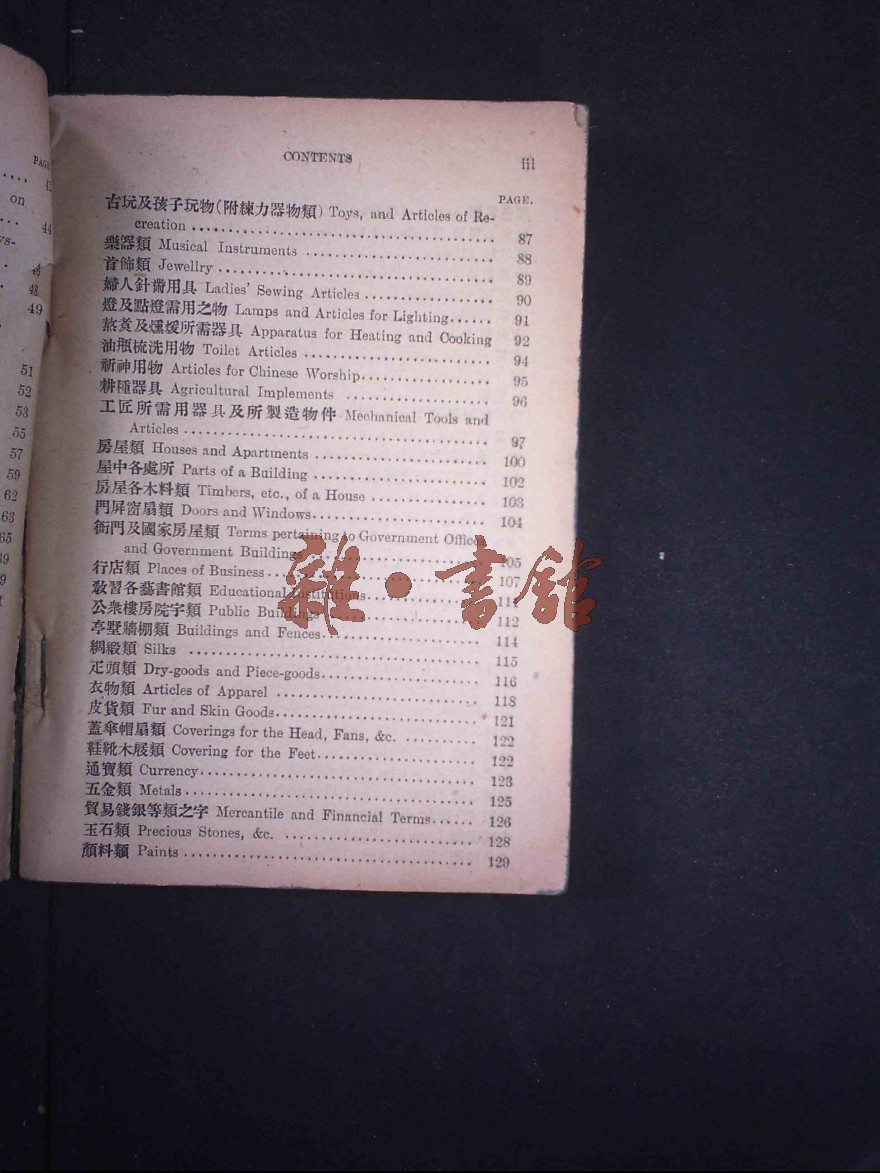 PAGE
on
44
ys-
46
48
49
51
52
53
55
57
59
62
63
65
69
CONTENTS
iii
PAGE.
古玩及孩子玩物(附練力器物類) Toys, and Articles of Re-
creation 87
樂器類 Musical Instruments 88
首飾類 Jewellry 89
婦人針黹用具 Ladies' Sewing Articles 90
燈及點燈需用之物 Lamps and Articles for Lighting 91
熬煑及燻煖所需器具 Apparatus for Heating and Cooking 92
油瓶梳洗用物 Toilet Articles 94
祈神用物 Articles for Chinese Worship 95
耕種器具 Agricultural Implements 96
工匠所需用器具及所製造物件 Mechanical Tools and
Articles 97
房屋類 Houses and Apartments 100
屋中各處所 Parts of a Building 102
房屋各木料類 Timbers, etc., of a House 103
門屏窗扇類 Doors and Windows 104
衙門及國家房屋類 Terms pertaining to Government Offices
and Government Buildings 105
行店類 Places of Business 107
敎習各藝書館類 Educational Institutions 111
公衆樓房院宇類 Public Buildings 112
亭墅牆棚類 Buildings and Fences 114
綢緞類 Silks 115
疋頭類 Dry-goods and Piece-goods 116
衣物類 Articles of Apparel 118
皮貨類 Fur and Skin Goods 121
蓋傘帽扇類 Coverings for the Head, Fans, &c. 122
鞋靴木屐類 Covering for the Feet 122
通寶類 Currency 123
五金類 Metals 125
貿易錢銀等類之字 Mercantile and Financial Terms 126
玉石類 Precious Stones, &c. 128
顏料類 Paints 129
雜·書館